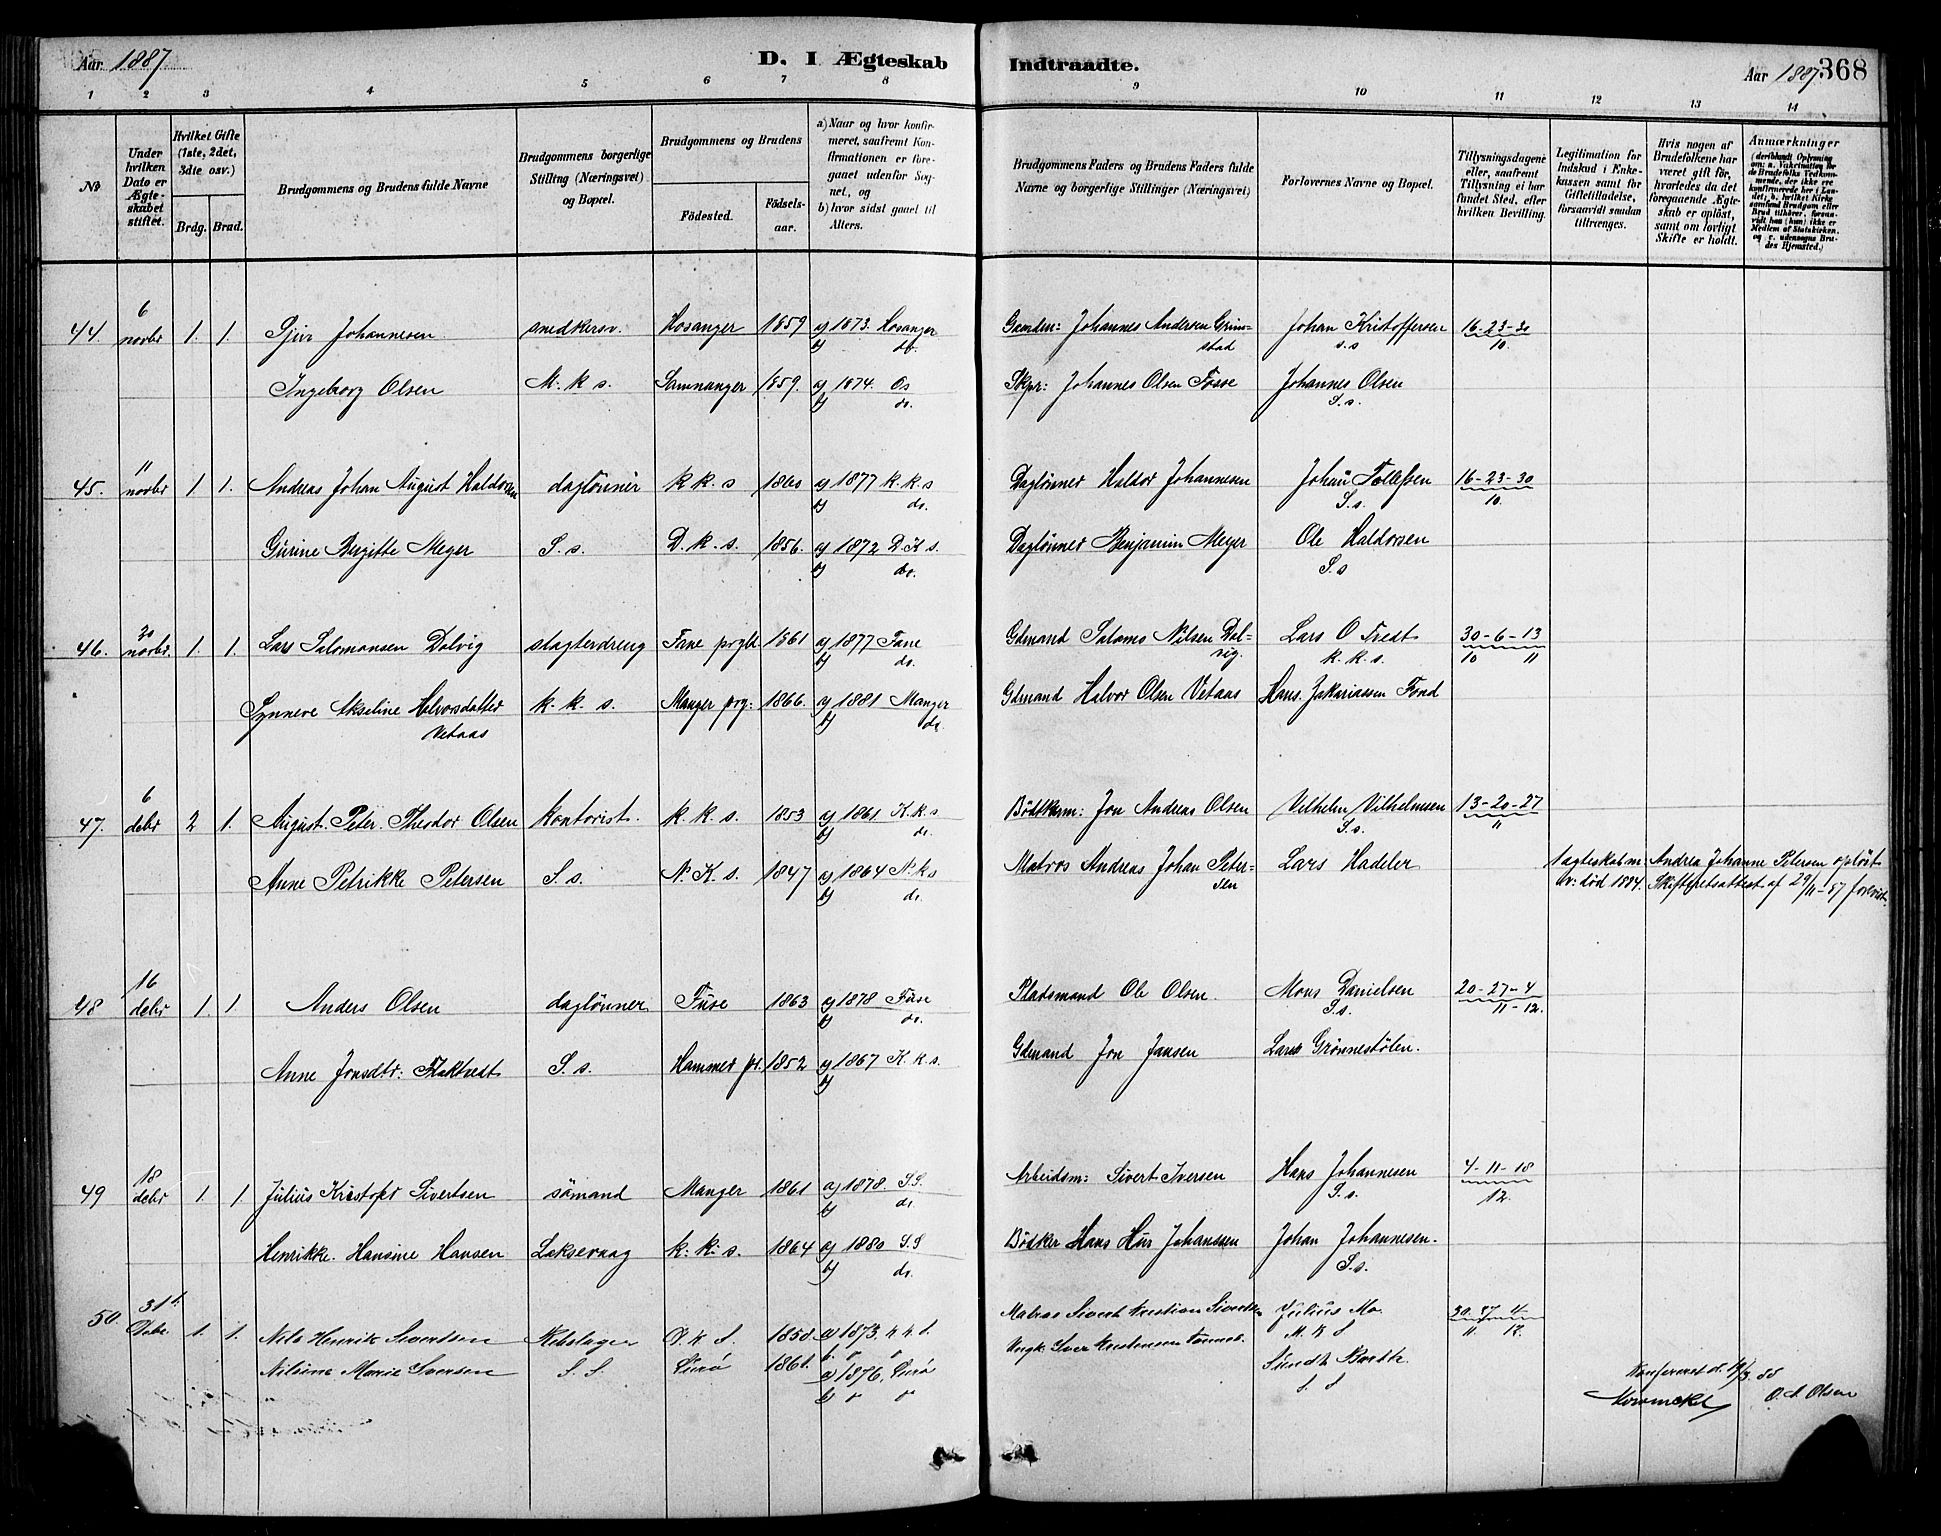 Aar 1887.
D. I Ægteskab Indtraadte.
Aar 1887. 368
1 2 3 4 5 6 7 8 9 10 11 12 13 14
No
Under hvilken Dato er Ægteskabet stiftet.
Hvilket Gifte (1ste, 2det, 3die osv.)
Brdg. Brud.
Brudgommens og Brudens fulde Navne
Brudgommens borgerlige Stilling (Næringsvei) og Bopæl.
Brudgommens og Brudens
Födested. Födsels-aar.
a) Naar og hvor konfirmeret, saafremt Konfirmationen er foregaaet udenfor Sognet, og
b) hvor sidst gaaet til Alters.
Brudgommens Faders og Brudens Faders fulde Navne og borgerlige Stillinger (Næringsvei)
Forlovernes Navne og Bopæl.
Tillysningsdagene eller, saafremt Tillysning ei har fundet Sted, efter hvilken Bevilling.
Legitimation for Indskud i Enkekassen samt for Giftetilladelse, forsaavidt saadan tiltrænges.
Hvis nogen af Brudefolkene har været gift för, hvorledes da det foregaaende Ægteskab er oplöst, samt om lovligt Skifte er holdt.
Anmærkninger
(deriblandt Oplysning om: a. Vakcination for de Brudefolks Vedkommende, der ikke ere konfirmerede her i Landet; b. hvilket Kirkesamfund Brudgom eller Brud tilhörer, forsaavidt han (hun) ikke er Medlem af Statskirken, og c. udensogns Brudes Hjemsted.)
44. 6 novbr 1. 1. Sjur Johannesen snedkersv. Hosanger 1859 a) 1873. Hosanger b) do. Gamden: Johannes Andersen Grimstad Johan Kristoffersen s.s 16-23-30 10.
Ingeborg Olsen M. k s. Samnanger 1859. a) 1874. Os b) do. Skpr: Johannes Olsen Fosse Johannes Olsen S.s.
45. 11 novbr 1. 1. Andreas Johan August Haldorsen daglönner k k. s 1860 a) 1877 k. k. s b) do. Daglönner Haldor Johannesen Johan Tollefsen S.s. 16-23-30 10.
Gurine Birgitte Meyer S. s. D. k. s. 1856. a) 1872 D. K s. b) do. Daglönner Benjamin Meyer Ole Haldorsen S.s
46. 30 novbr. 1. 1. Lars Salomonsen Dolvig slagterdreng Fane prgld. 1861 a) 1877 Fane b) do. Gdmand Salomo Nilsen Dolvig. Lars O Tvedt k. k. s. 30-6-13 10 11
Synneve Akseline Halvorsdatter Vetaas k. k. s. Manger prg: 1866. a) 1881 Manger b) do. Gdmand Halvor Olsen Vetaas Hans Zakariassen Fond
47. 6 debr 2 1. August. Peter. Theodor Olsen kontorist. k. k s. 1853 a) 1861 K. k. s b) do. Bödtkerm: Jon Andreas Olsen Vilhelm Vilhelmsen S.s. 13-20-27 11
Anne Petrikke Petersen S. s. N. K. s. 1847 a) 1864 N. k s b) do. Matros Andreas Johan Petersen Lars Hadeler 1 ægteskab m: Andrea Johanne Petersen oplöst
v: död 1884. Skifteretsattest af 29/11-87 forevist.
48 16 debr 1. 1. Anders Olsen daglönner Fuse 1863 a) 1878 Fuse b) do. Pladsmand Ole Olsen. Mons Danielsen S.s. 20-27-4 11-12.
Anne Jonsdtr: Flaktvedt S. s. Hammer pr. 1852 a) 1867 K. k. s. b) Gdmand Jon Jansen Lars Grönnestölen.
49 18 debr 1. 1 Julius Kristofer Sivertsen sömand Manger 1861 a) 1878. S.S. b) do. Arbeidsm: Sivert Iversen Hans Johannesen S.s. 4-11-18 12.
Henrikke. Hansine Hansen Laksevaag k. k: s. 1864 a) 1880 S.S b) do. Bödker Hans Hür Johanssen Johan Johannesen. S.s.
50. 31t Debr. 1. 1. Nils Henrik Sivertsen Rebslager D. k S. 1858. a) 1873. k k. s. b. " " Matros Sivert Kristian Sivertsen Julius Mo. M. K S 20. 27. 4 11 12.
Nilsine Marie Iversen S. S. 1861. a) 1876. b) " " Iver Kristensen Sundt S. S
Konfereret d. 19/3. 88
O. A Olsen